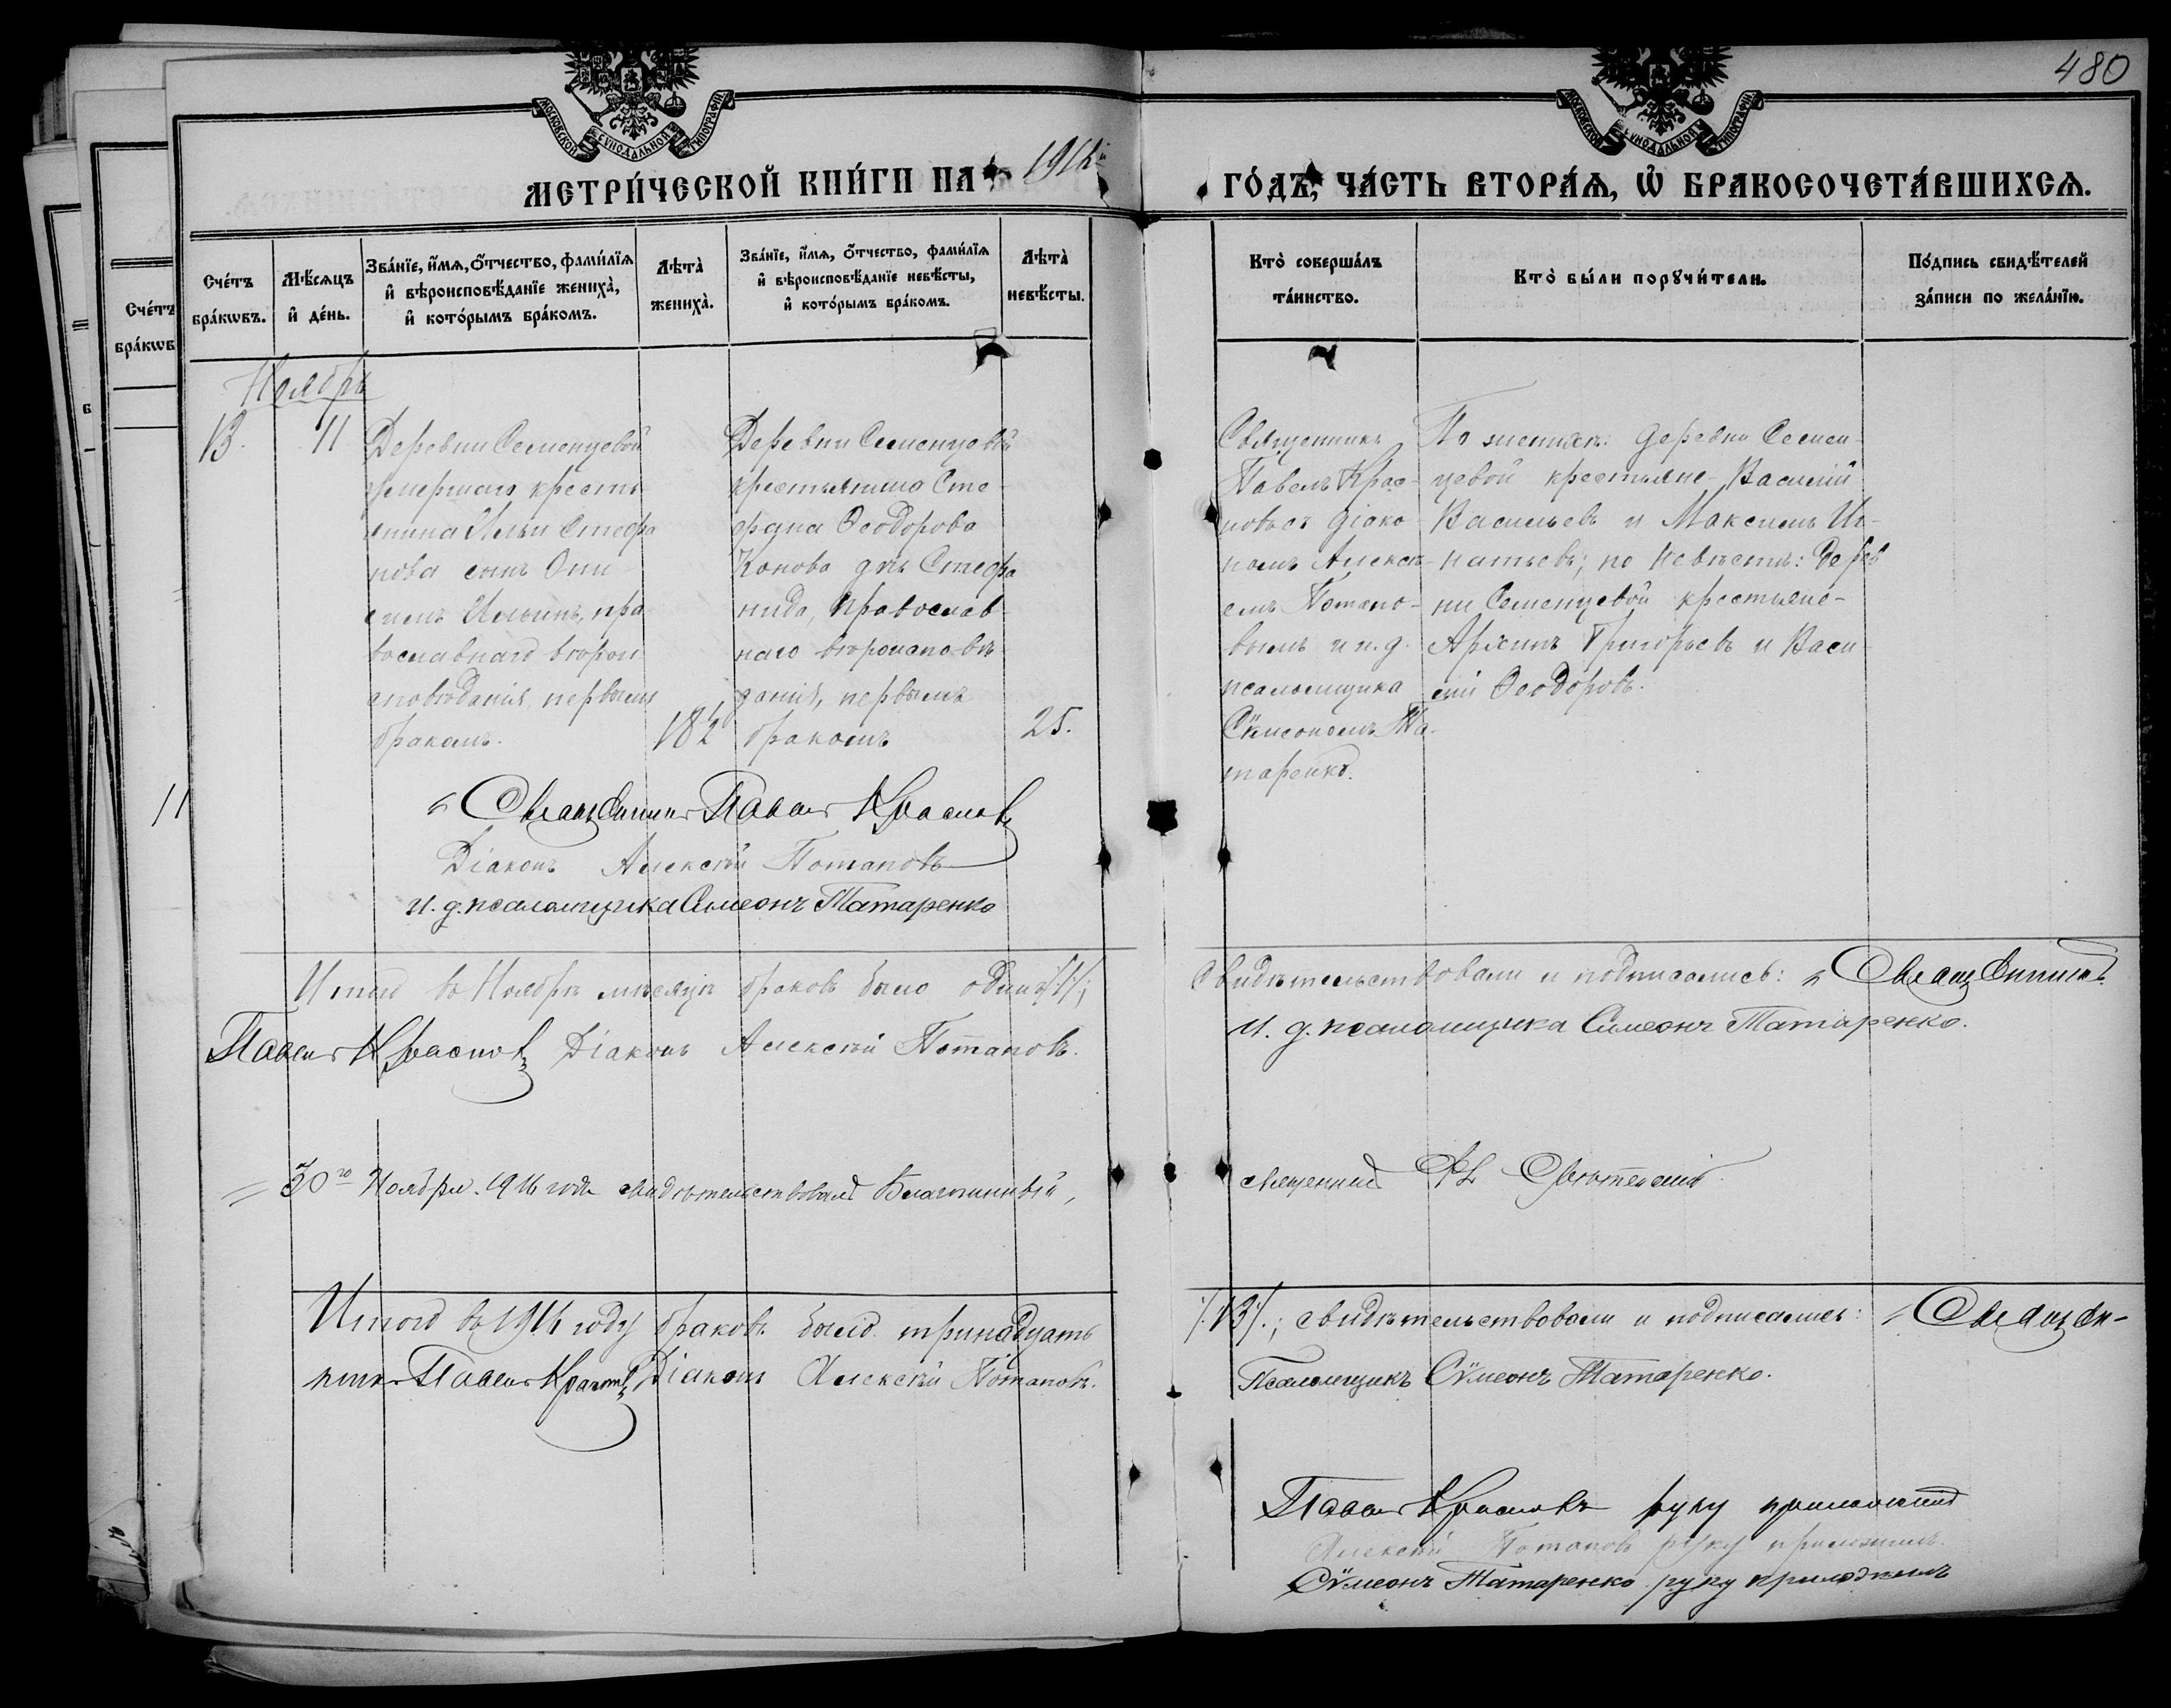 480
МОСКОВСКОЙ СѴНОДАЛЬНОЙ ТИПОГРАФІИ
МОСКОВСКОЙ СѴНОДАЛЬНОЙ ТИПОГРАФІИ
МЕТРИ́ЧЕСКОЙ КНИ́ГИ НА 1916 й
ГО́ДЪ, ЧА́СТЬ ВТОРА́Я, Ѽ БРАКОСОЧЕТА́ВШИХСЯ.
Сче́тъ
бра́кѡвъ.
Мѣ́сяцъ
и҆ де́нь.
Зва́нїе, и҆́мя, ѻ҆́тчество, фами́лїя
и҆ вѣроисповѣ́данїе жениха̀,
и҆ кото́рымъ бра́комъ.
Лѣта̀
жениха̀.
Зва́нїе, и҆́мя, ѻ҆́тчество, фами́лїя
и҆ вѣроисповѣ́данїе невѣ́сты,
и҆ кото́рымъ бра́комъ.
Лѣта̀
невѣ́сты.
Кто̀ соверша́лъ
та́инство.
Кто̀ бы́ли порꙋчи́тели.
По́дпись свидѣ́телей
за́писи по жела́нїю.
Сче́тъ
бра́кѡвъ
Ноябрь
13. 11
Деревни Семенцевой
умершаго кресть-
янина Ильи Стефа
нова сынъ Они-
симъ Ильинъ, пра-
вославнаго вѣрои-
сповѣданія, первымъ
бракомъ.
18½
Деревни Семенцевой
крестьянина Сте-
фана Ѳеодорова
Конова дчь Стефа
нида, православ-
наго вѣроисповѣ-
данія, первымъ
бракомъ
25.
Священникъ
Павелъ Крас-
новъ съ діако-
номъ Алексѣ-
емъ Потапо-
вымъ и и. д.
псаломщика
Сѵмеономъ Та-
таренко.
По женихѣ: деревни Семен-
цевой крестьяне- Василій
Васильевъ и Максимъ Иг-
натьевъ; по невѣстѣ: Дерев
ни Семенцевой крестьяне-
Архипъ Григорьевъ и Васи-
лій Ѳеодоровъ.
11
Священникъ Павелъ Красновъ
Діаконъ Алексѣй Потаповъ
И. д. псаломщика Симеонъ Татаренко
Итого въ Ноябрѣ мѣсяцѣ браковъ было одинъ /:1:/;
Свидѣтельствовали и подписались: Священникъ
Павелъ Красновъ Діаконъ Алексѣй Потаповъ.
И. д. псаломщика Симеонъ Татаренко.
30го Ноября 1916 года свидѣтельствовалъ Благочинный,
священникъ
Итого въ 1916 году браковъ было тринадцать
/:13:/.; свидѣтельствовали и подписались: Священ-
никъ Павелъ Красновъ Діаконъ Алексѣй Потаповъ.
Псаломщикъ Сѵмеонъ Татаренко.
Павелъ Красновъ руку приложилъ
Алексѣй Потаповъ руку приложилъ
Сѵмеонъ Татаренко руку приложилъ